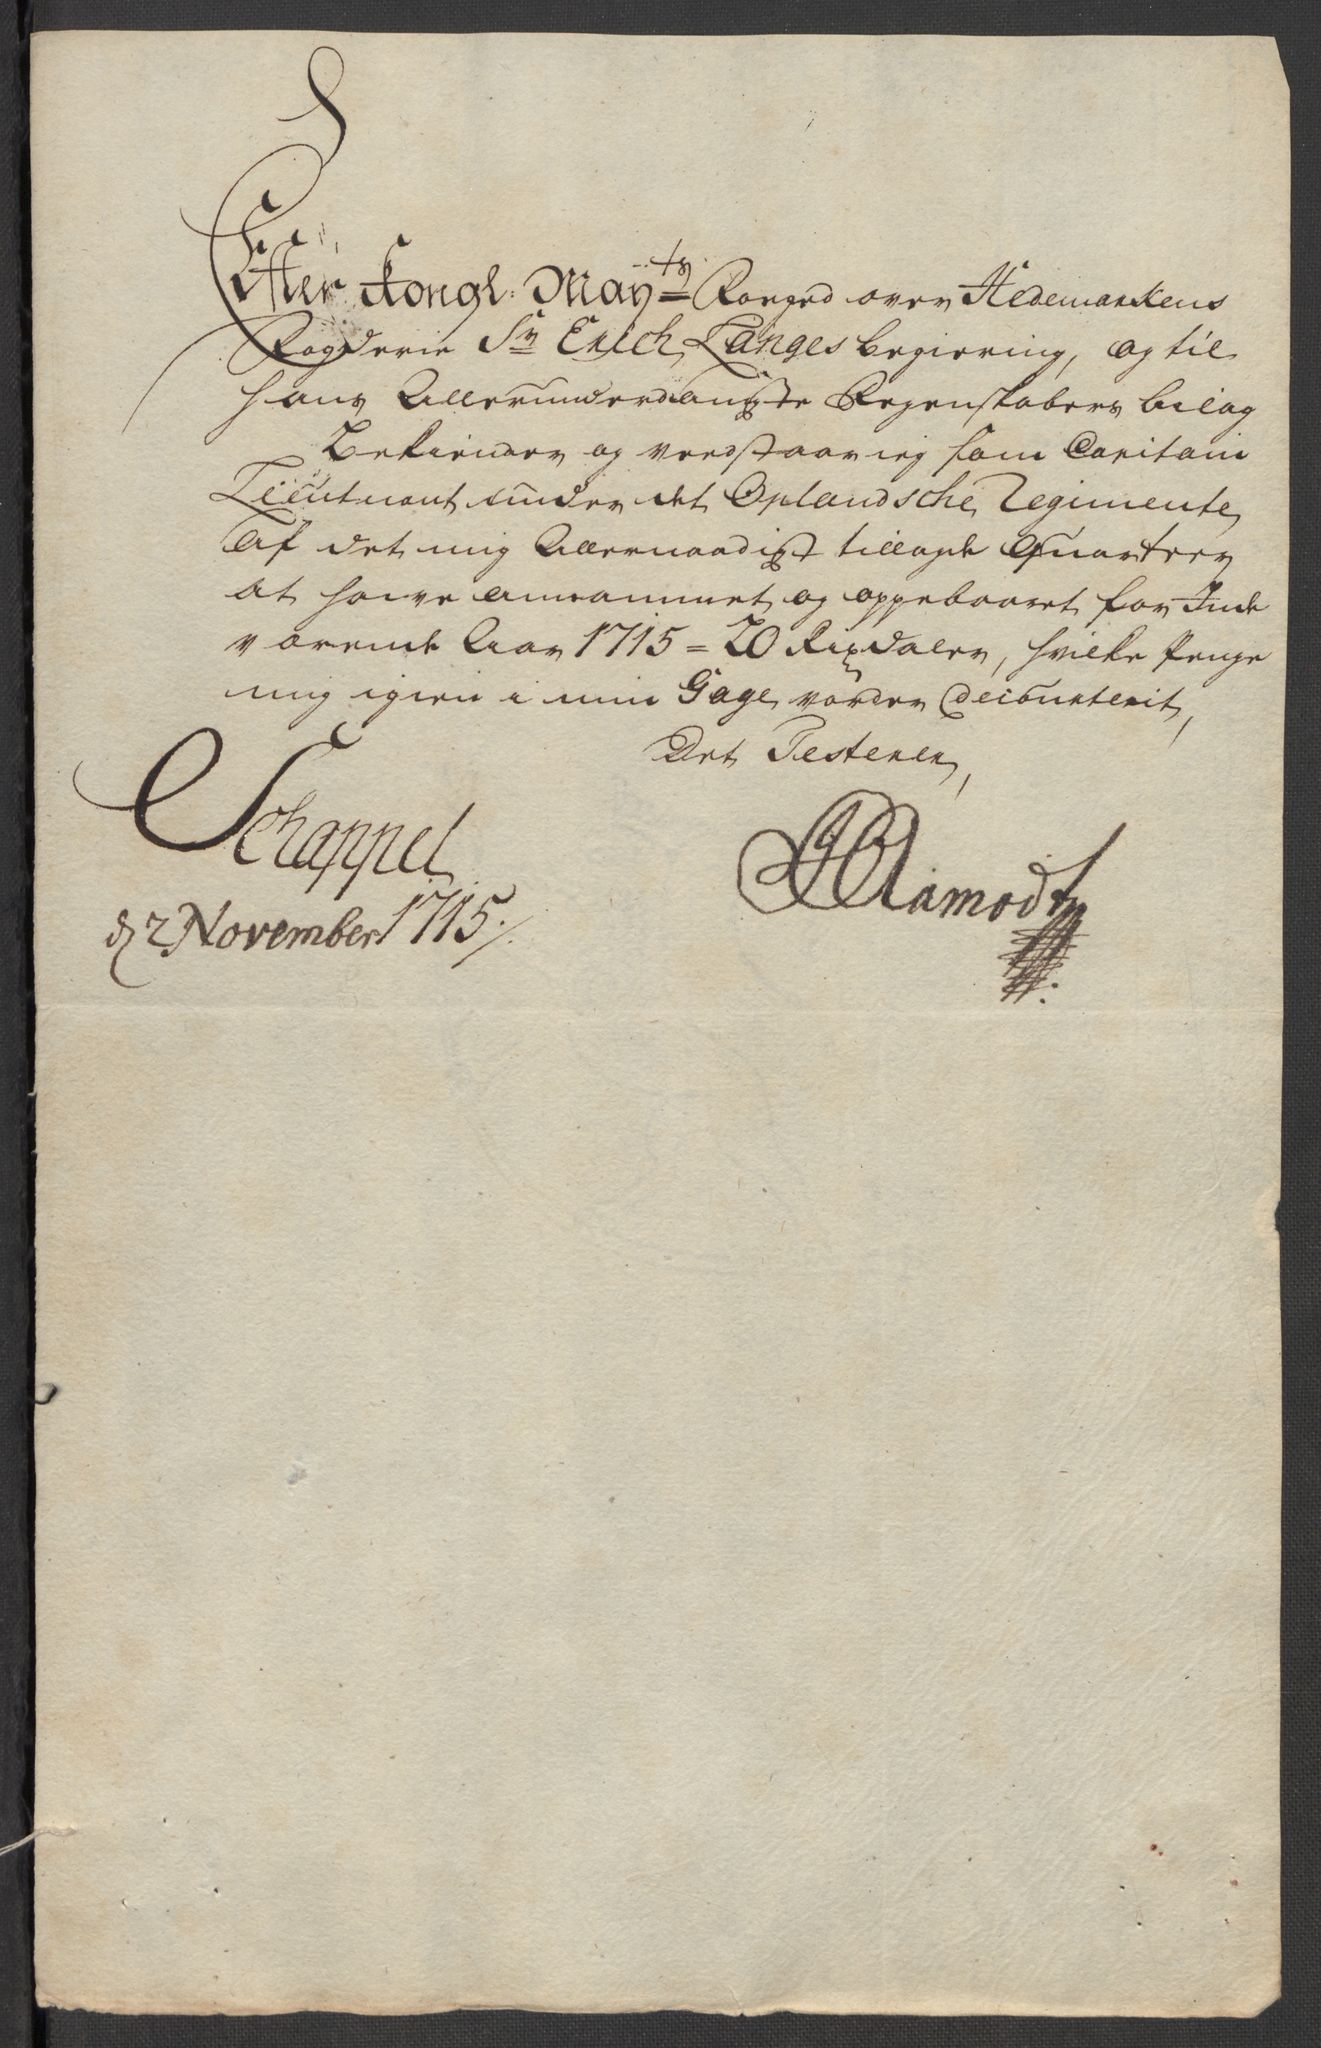 Efter Kongl: May:ts Foeged over Hedemarkens
Fogderie Sr Erich Langes begiering, og til
hans Allerunderdanigste Regenskabers bilag
Bekiender og vedstaar ieg som Capitain
Lieutnant under det Oplandsche Regimente,
Af det mig Allernaadigst tillagde Quarteer
at have annammet og oppebaaret for Inde
værende Aar 1715 = 20 Rixdaler, hvilke Penge
mig igien i min Gage vorder decourterit,
Det Testerer,
Schappel
d 2 November 1715 ./.
Aamodt